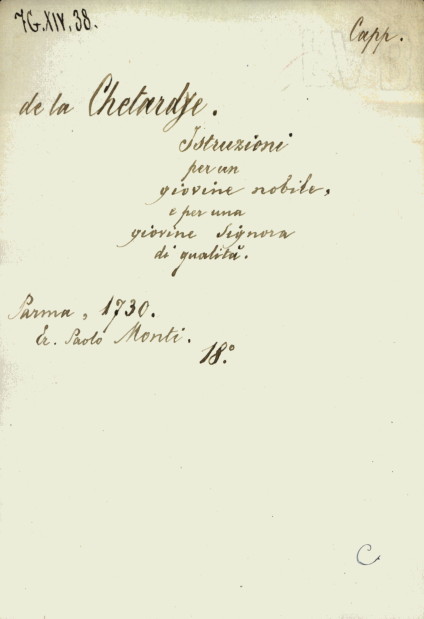 7G.XIV.38.
Capp.
de la Chetardye.
Istruzioni
per un
giovine nobile,
e per una
giovine Signora
di qualità.
Parma, 1730.
Er. Paolo Monti.
18.°
C